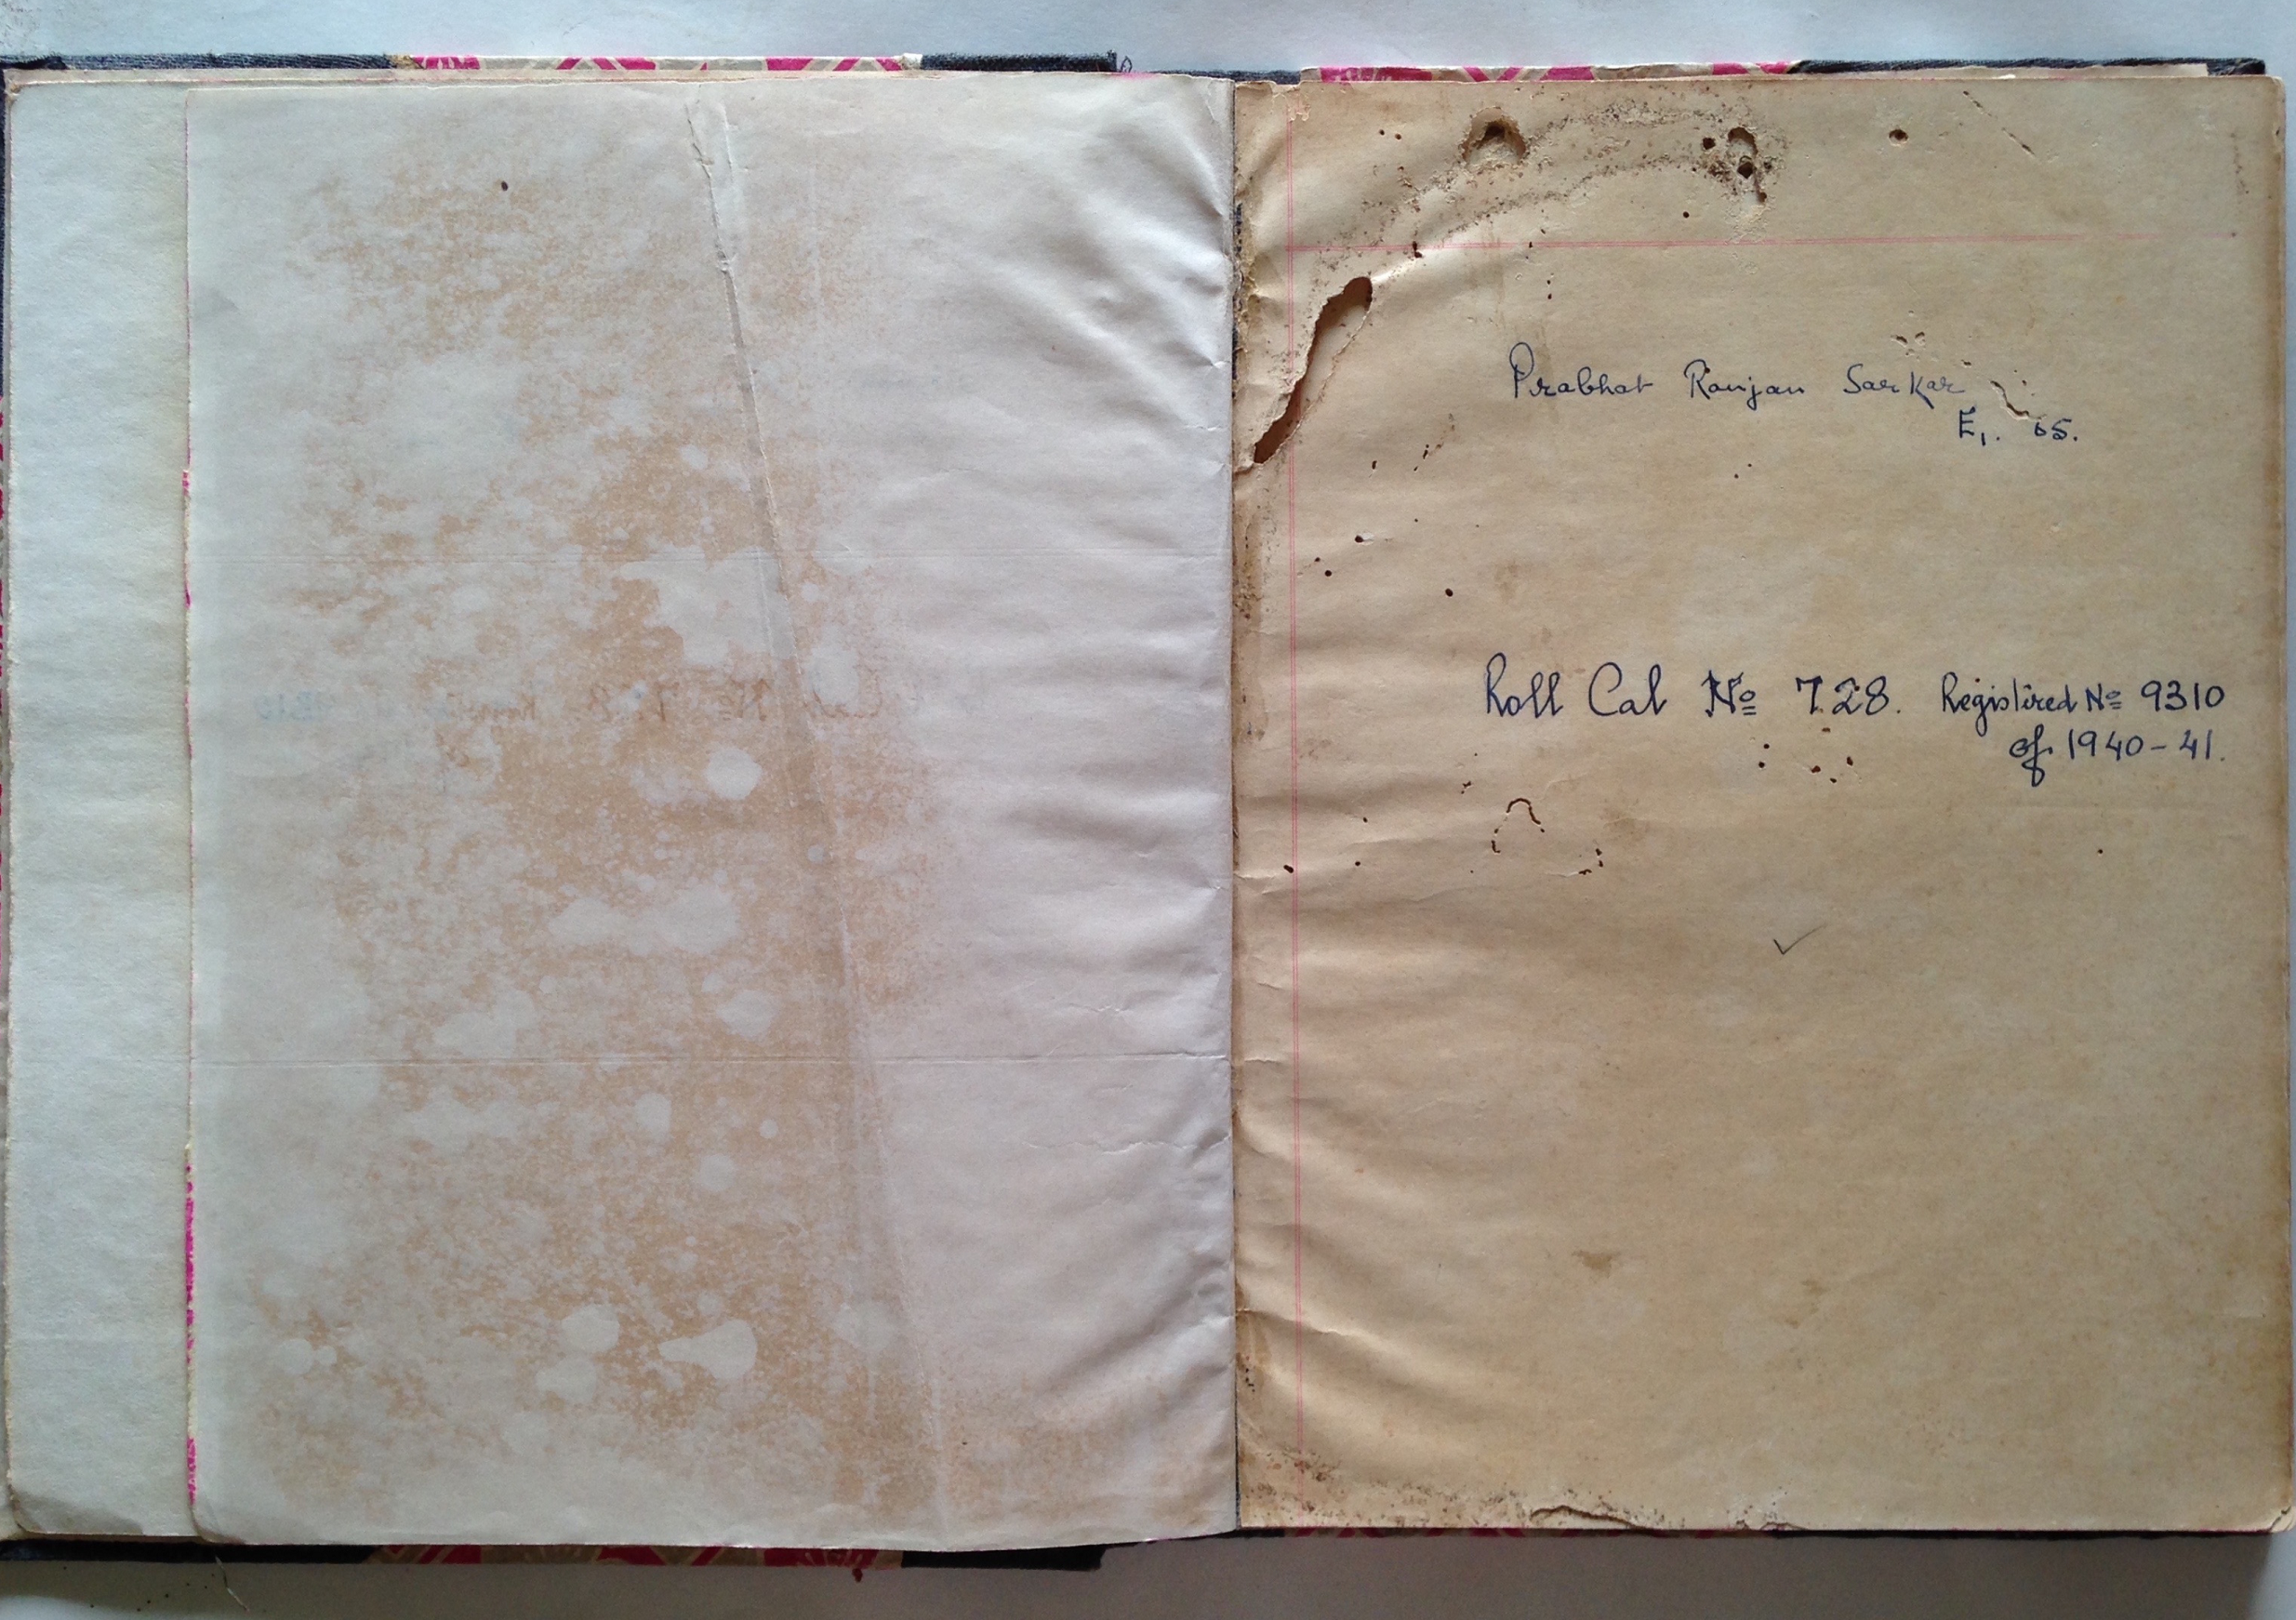 Prabhat Ranjan Sarkar
E1. 65.
Roll Cal No 728. Registired No 9310
of 1940-41.